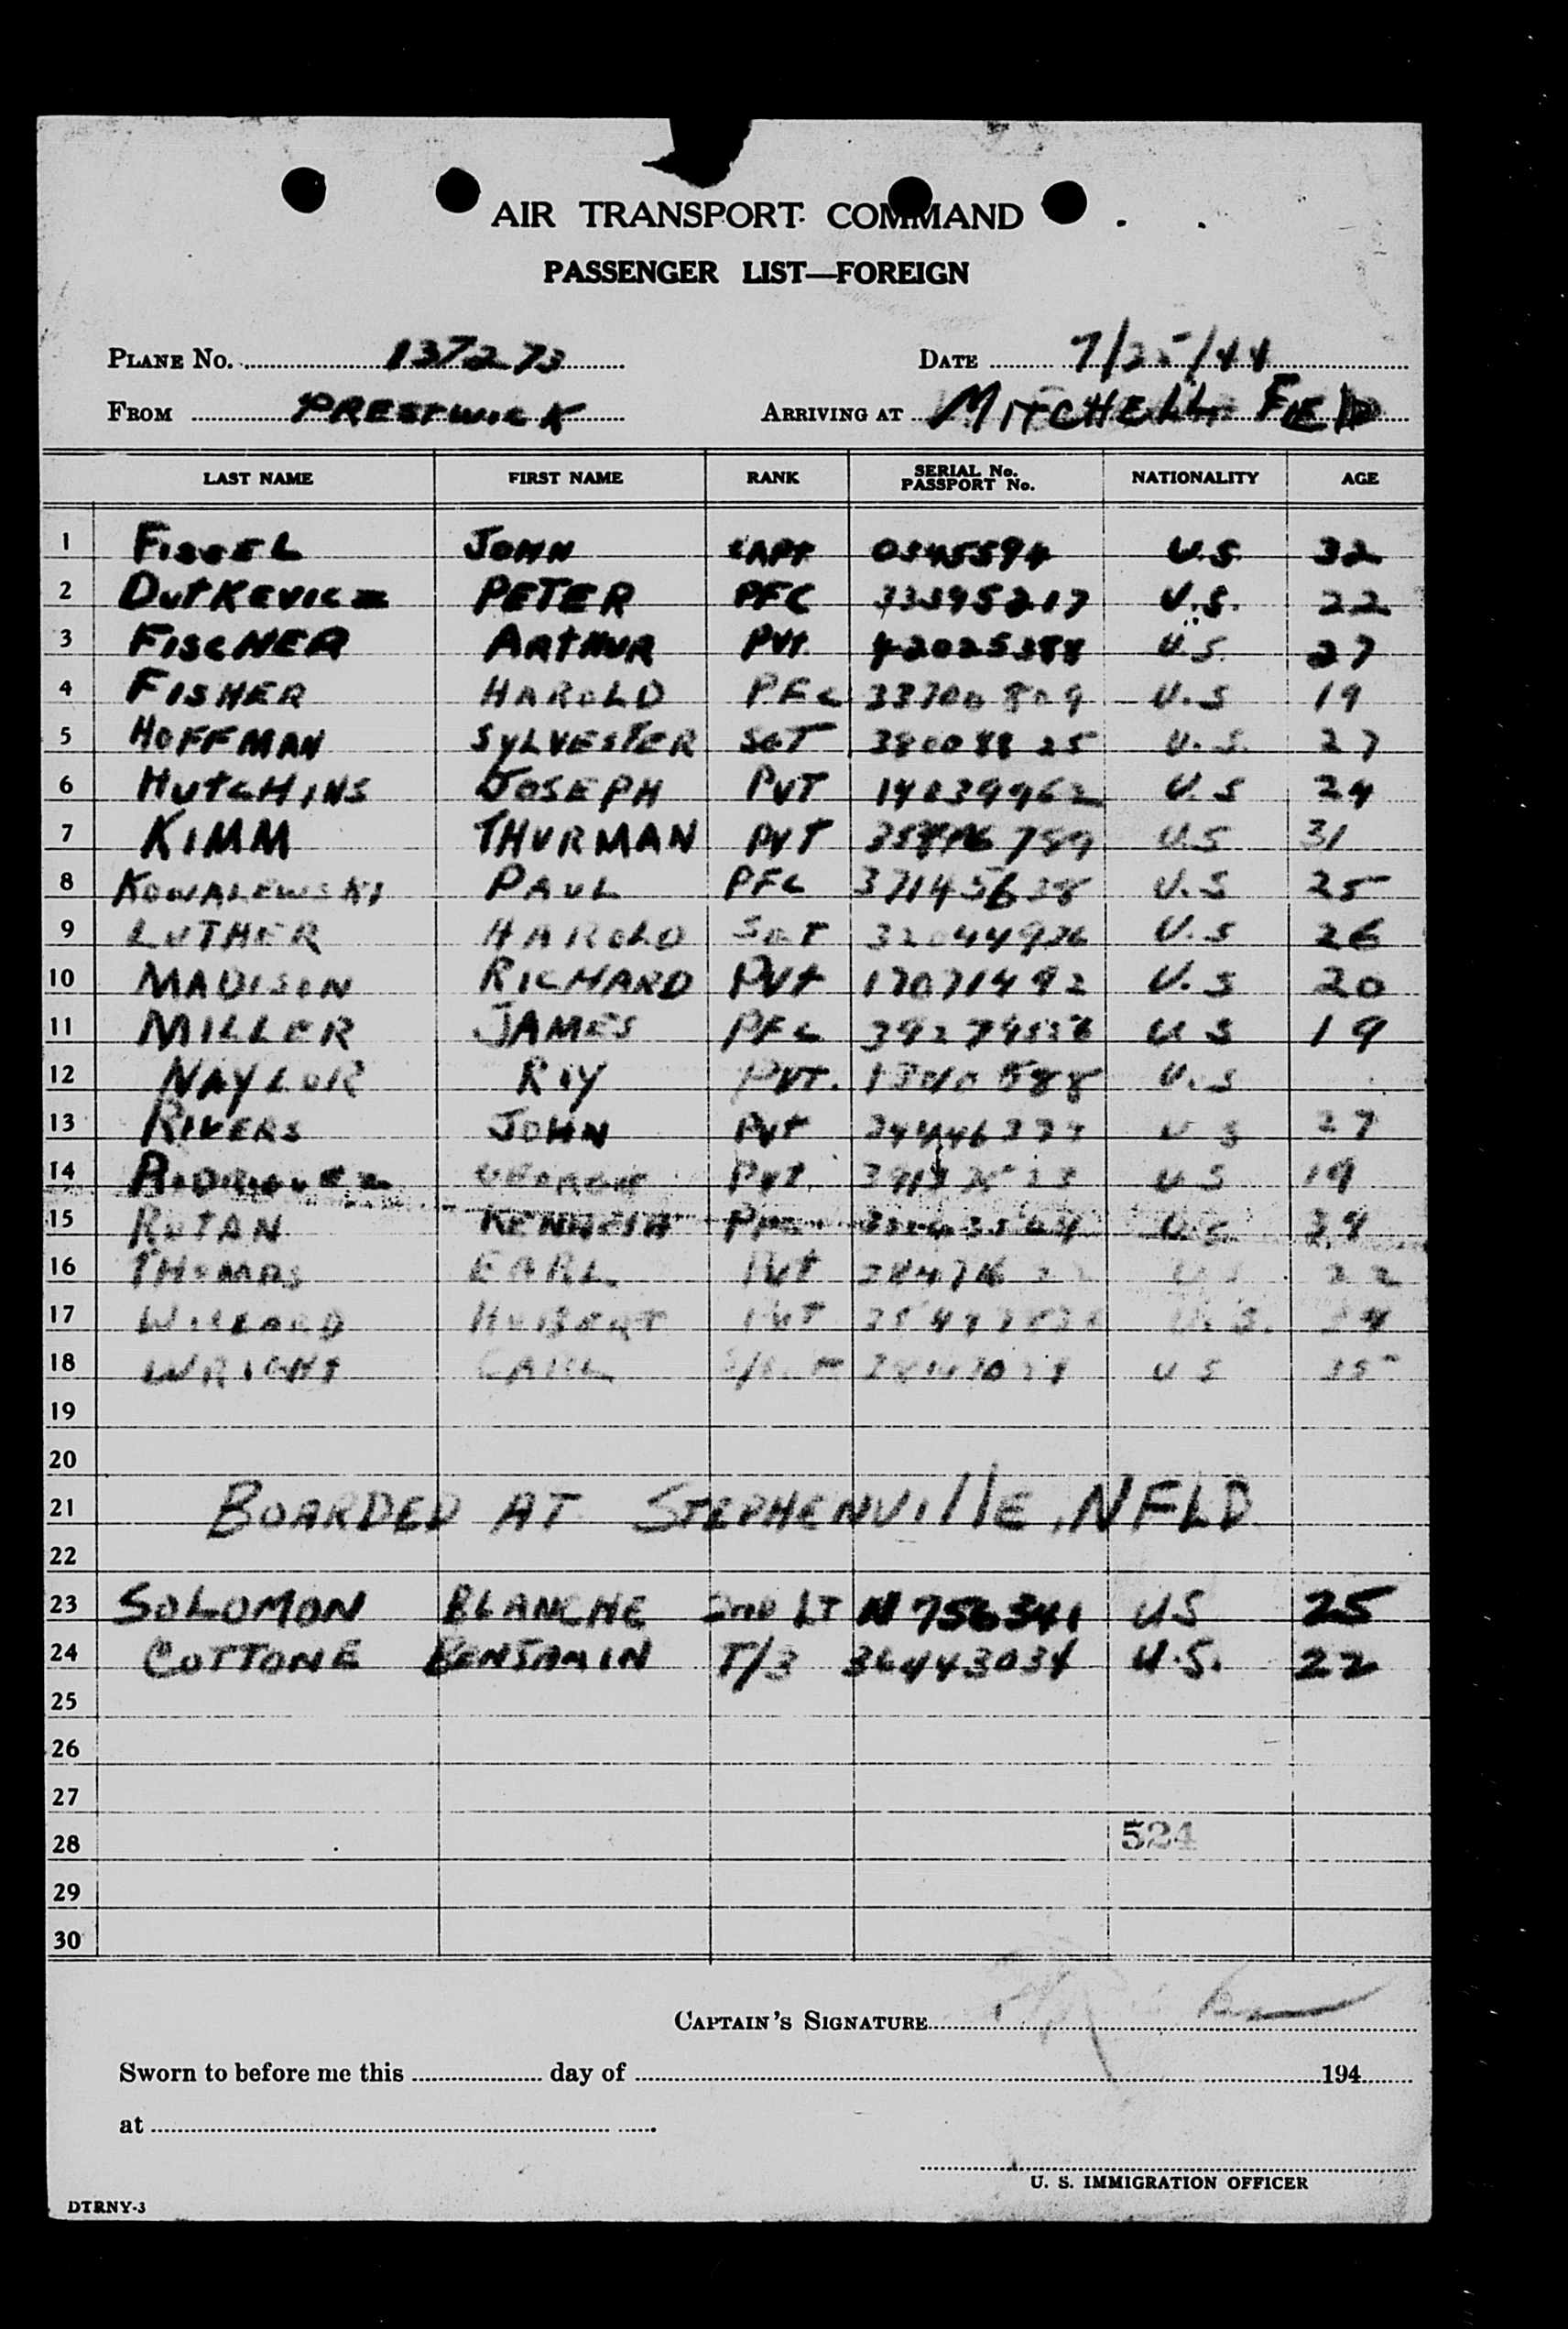 AIR TRANSPORT COMMAND
PASSENGER LIST—FOREIGN
PLANE No. 137273 DATE 7/25/44
FROM PRESTWICK ARRIVING AT MITCHELL FIELD
LAST NAME FIRST NAME RANK SERIAL No. PASSPORT No. NATIONALITY AGE
1 JOHN CAPT 0345594 U.S. 32
2 DUTKEVICZ PETER PFC 33395217 U.S. 22
3 FISCHER ARTHUR PVT. 42025388 U.S. 27
4 FISHER HAROLD PFC 33700809 U.S 19
5 HOFFMAN SYLVESTER SGT 38008825 U.S. 27
6 HUTCHINS JOSEPH PVT 14039962 U.S 24
7 KIMM THURMAN PVT U.S 31
8 KOWALEWSKI PAUL PFC 37145638 U.S 25
9 LUTHER HAROLD SGT 32044926 U.S 26
10 MADISON RICHARD PVT 17071492 U.S 20
11 MILLER JAMES PFC U S 19
12 NAYLOR ROY PVT. U.S
13 RIVERS JOHN PVT U S 27
14 RODRIGUEZ GEORGE PVT. U S 19
15 RUTAN KENNETH U.S
16 THOMAS EARL PVT 22
17 WILLARD HUBERT PVT U.S. 24
18 WRIGHT CARL U S
19
20
21 BOARDED AT STEPHENVIllE, NFLD
22
23 SOLOMON BLANCHE 2ND LT N 756341 US 25
24 COTTONE BENJAMIN T/3 36443034 U.S. 22
25
26
27
28 524
29
30
CAPTAIN'S SIGNATURE
Sworn to before me this day of 194
at
U. S. IMMIGRATION OFFICER
DTRNY-3